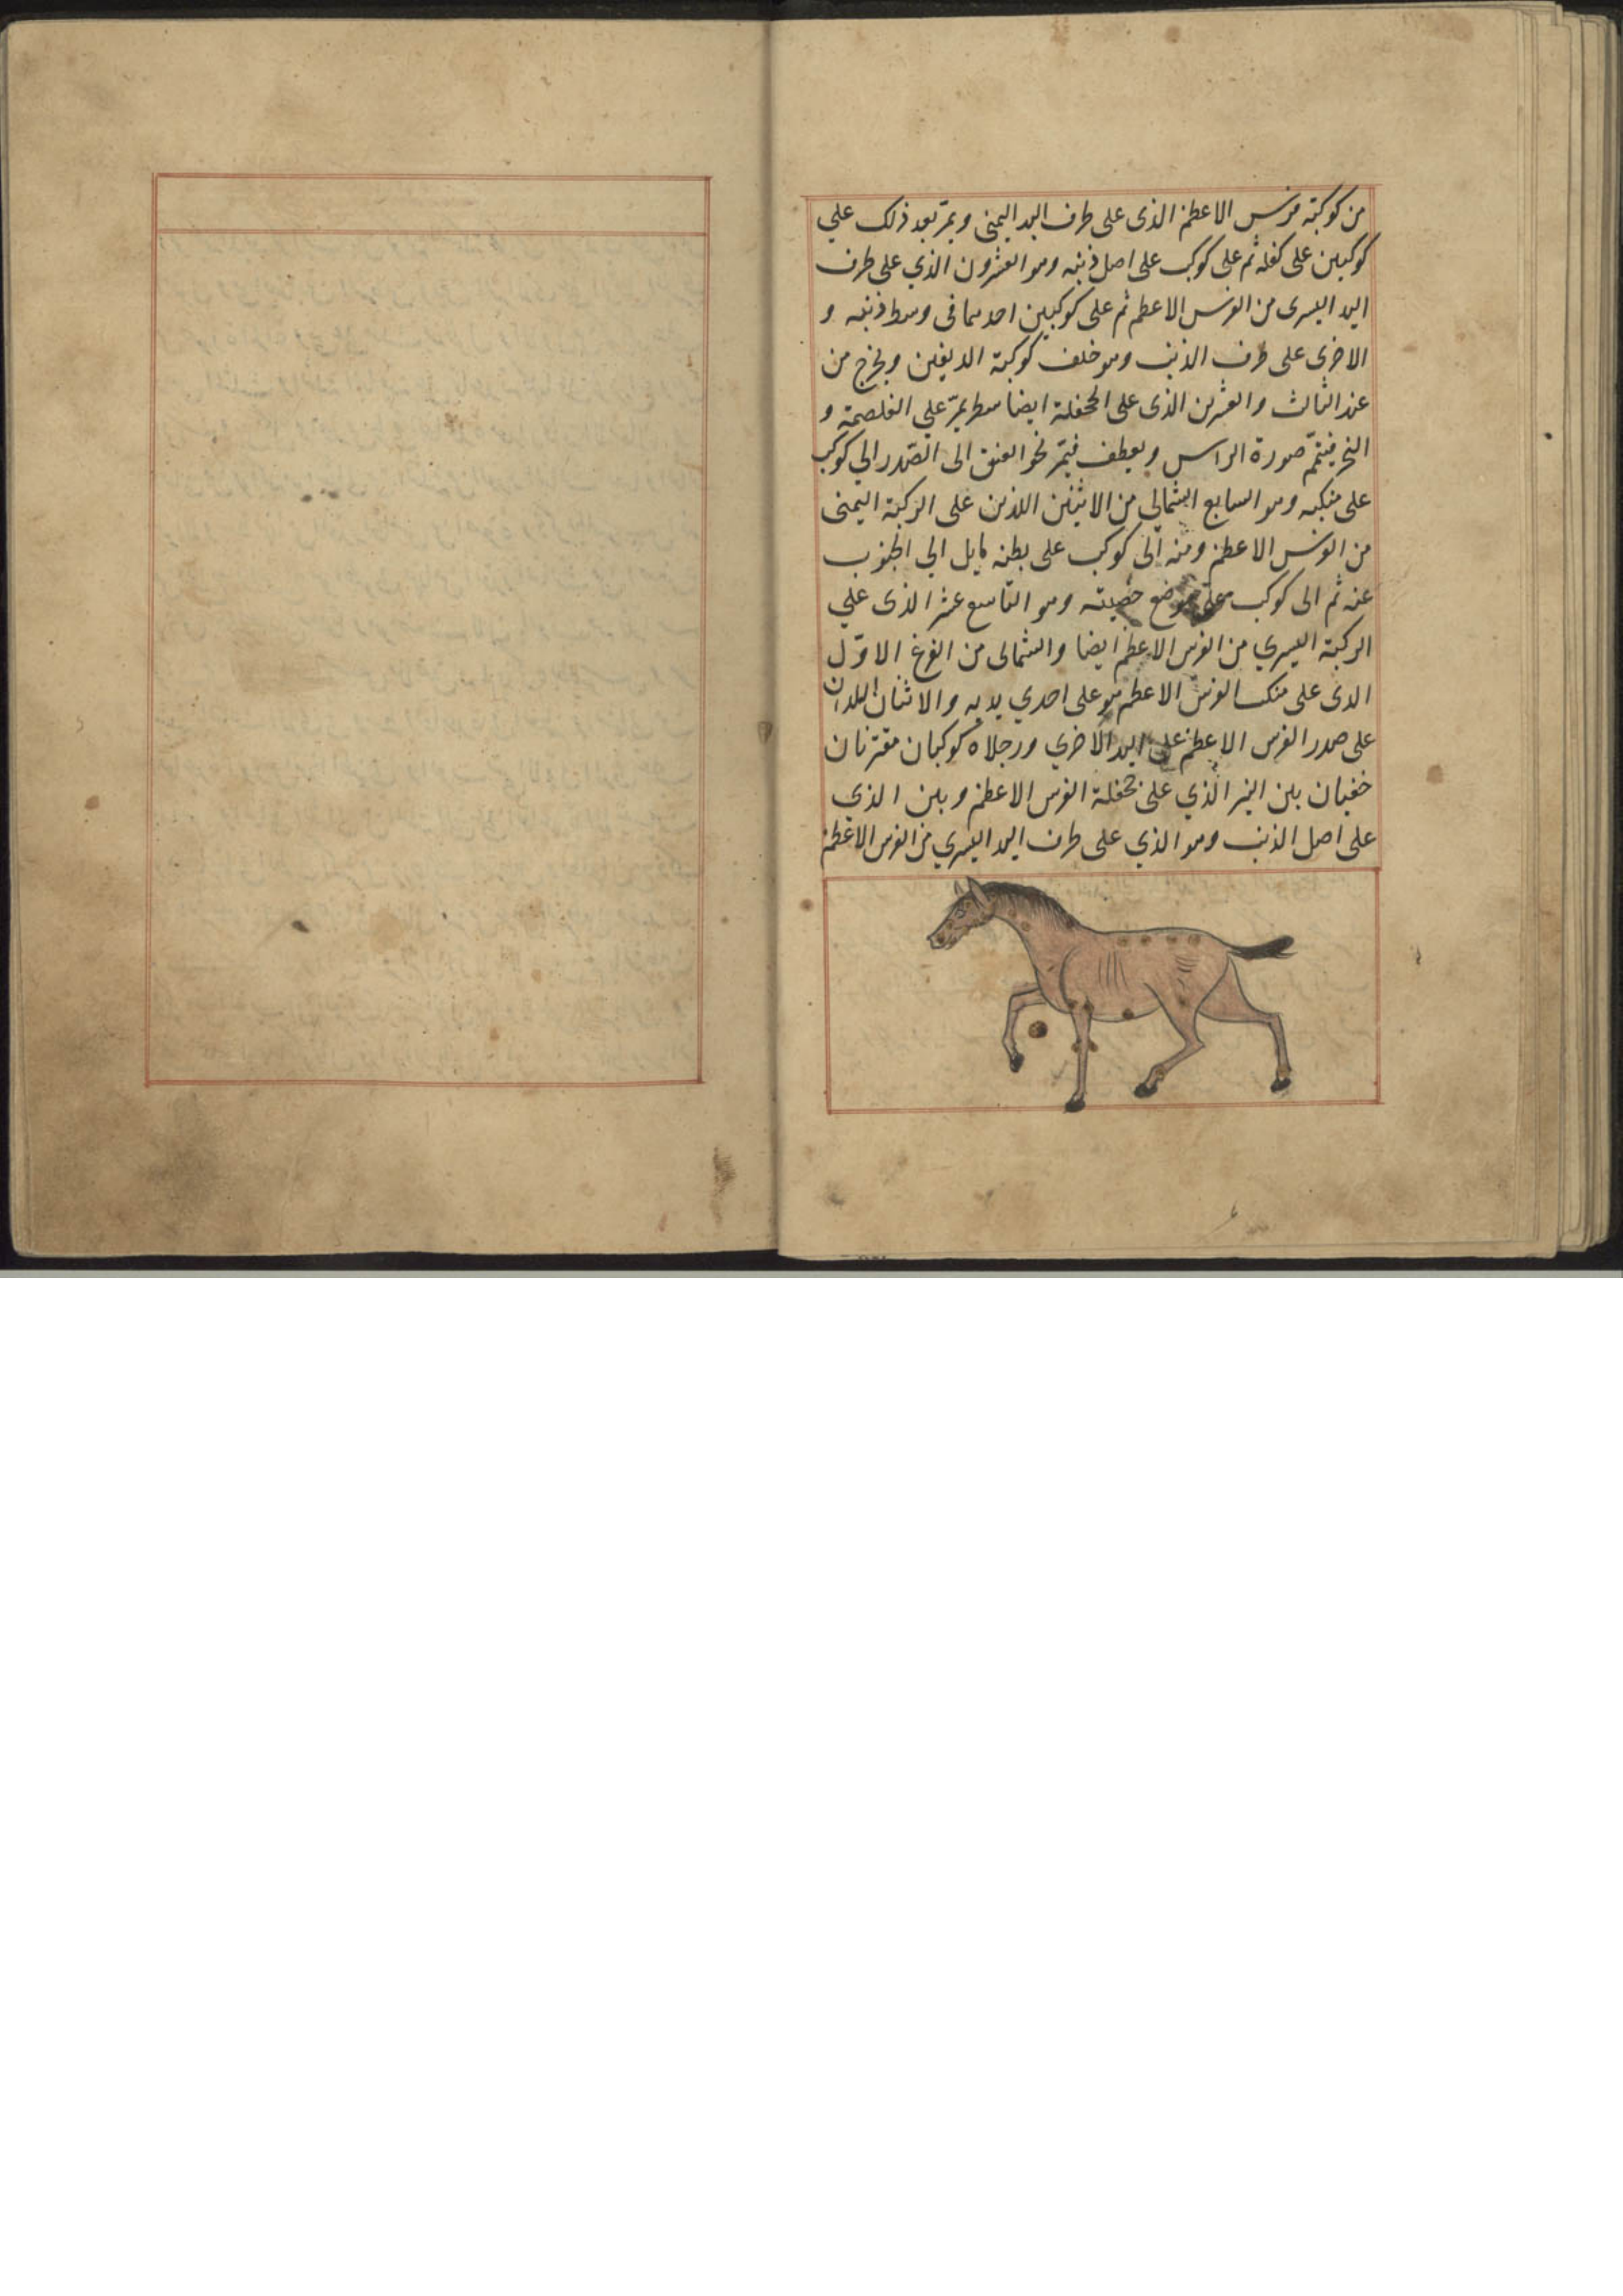 من كوكبته فرس الاعظم الذى على طرف اليد اليمنى ويمرّ بعد ذلك علي
كوكبين على كفله ثم على كوكب على اصل ذنبه وهو العشرون الذي على طرف
اليد اليسرى من الفرس الاعظم ثم على كوكبين احدهما فى وسط ذنبه و
الاخرى على طرف الذنب وهو خلف كوكبة الدلفين ويخرج من
عند الثالث والعشرين الذى على الجحفلة ايضا سطر يمرّ علي الغلصمة و
النحر فيتمّ صورة الراس ويعطف فيمرّ نحو العنق الى الصّدر الي كوكب
على منكبه وهو السابع الشمالي من الاثنين اللذين على الركبة اليمنى
من الفرس الاعظم ومنه الى كوكب على بطنه مايل الي الجنوب
عنه ثم الى كوكب على موضع خصيته وهو التاسع عشر الذى علي
الركبة اليسري من الفرس الاعظم ايضا والشمالى من الفرغ الاوّل
الذى على منكب الفرس الاعظم هو على احدي يديه والاثنان اللذان
على صدر الفرس الاعظم على اليد الاخري ورجلاه كوكبان مقترنان
خفيان بين النير الذي على جحفلة الفرس الاعظم وبين الذي
على اصل الذنب وهو الذي على طرف اليد اليسري من الفرس الاعظم